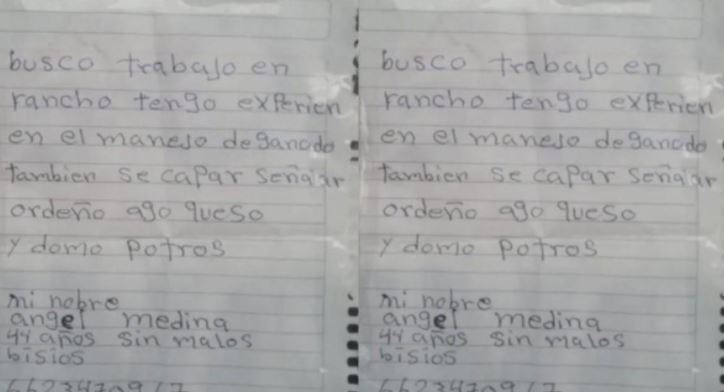 busco trabajo en
rancho tengo experien
en el manejo de ganado
tambien se capar señalar
ordeño ago queso
y domo potros
mi nobre
angel medina
44 años sin malos
bisios
busco trabajo en
rancho tengo experien
en el manejo de ganado
tambien se capar señalar
ordeño ago queso
y domo potros
mi nobre
angel medina
44 años sin malos
bisios